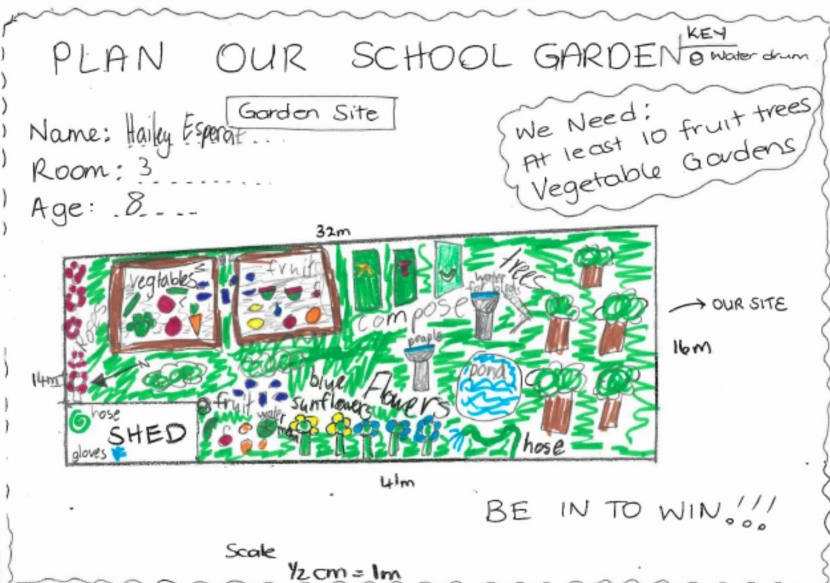 PLAN OUR SCHOOL GARDEN
KEY
Water drum
Garden Site
Name: Hailey Esperat
Room: 3
Age: 8
We Need:
At least 10 fruit trees
Vegetable Gardens
32m
vegtables
fruit
trees
water for birds
compose
people
pond
14m
N
OUR SITE
16m
hose
SHED
gloves
fruit
water
blue
sunflowers
Flowers
hose
41m
BE IN TO WIN!!!
Scale
1/2 cm = 1m